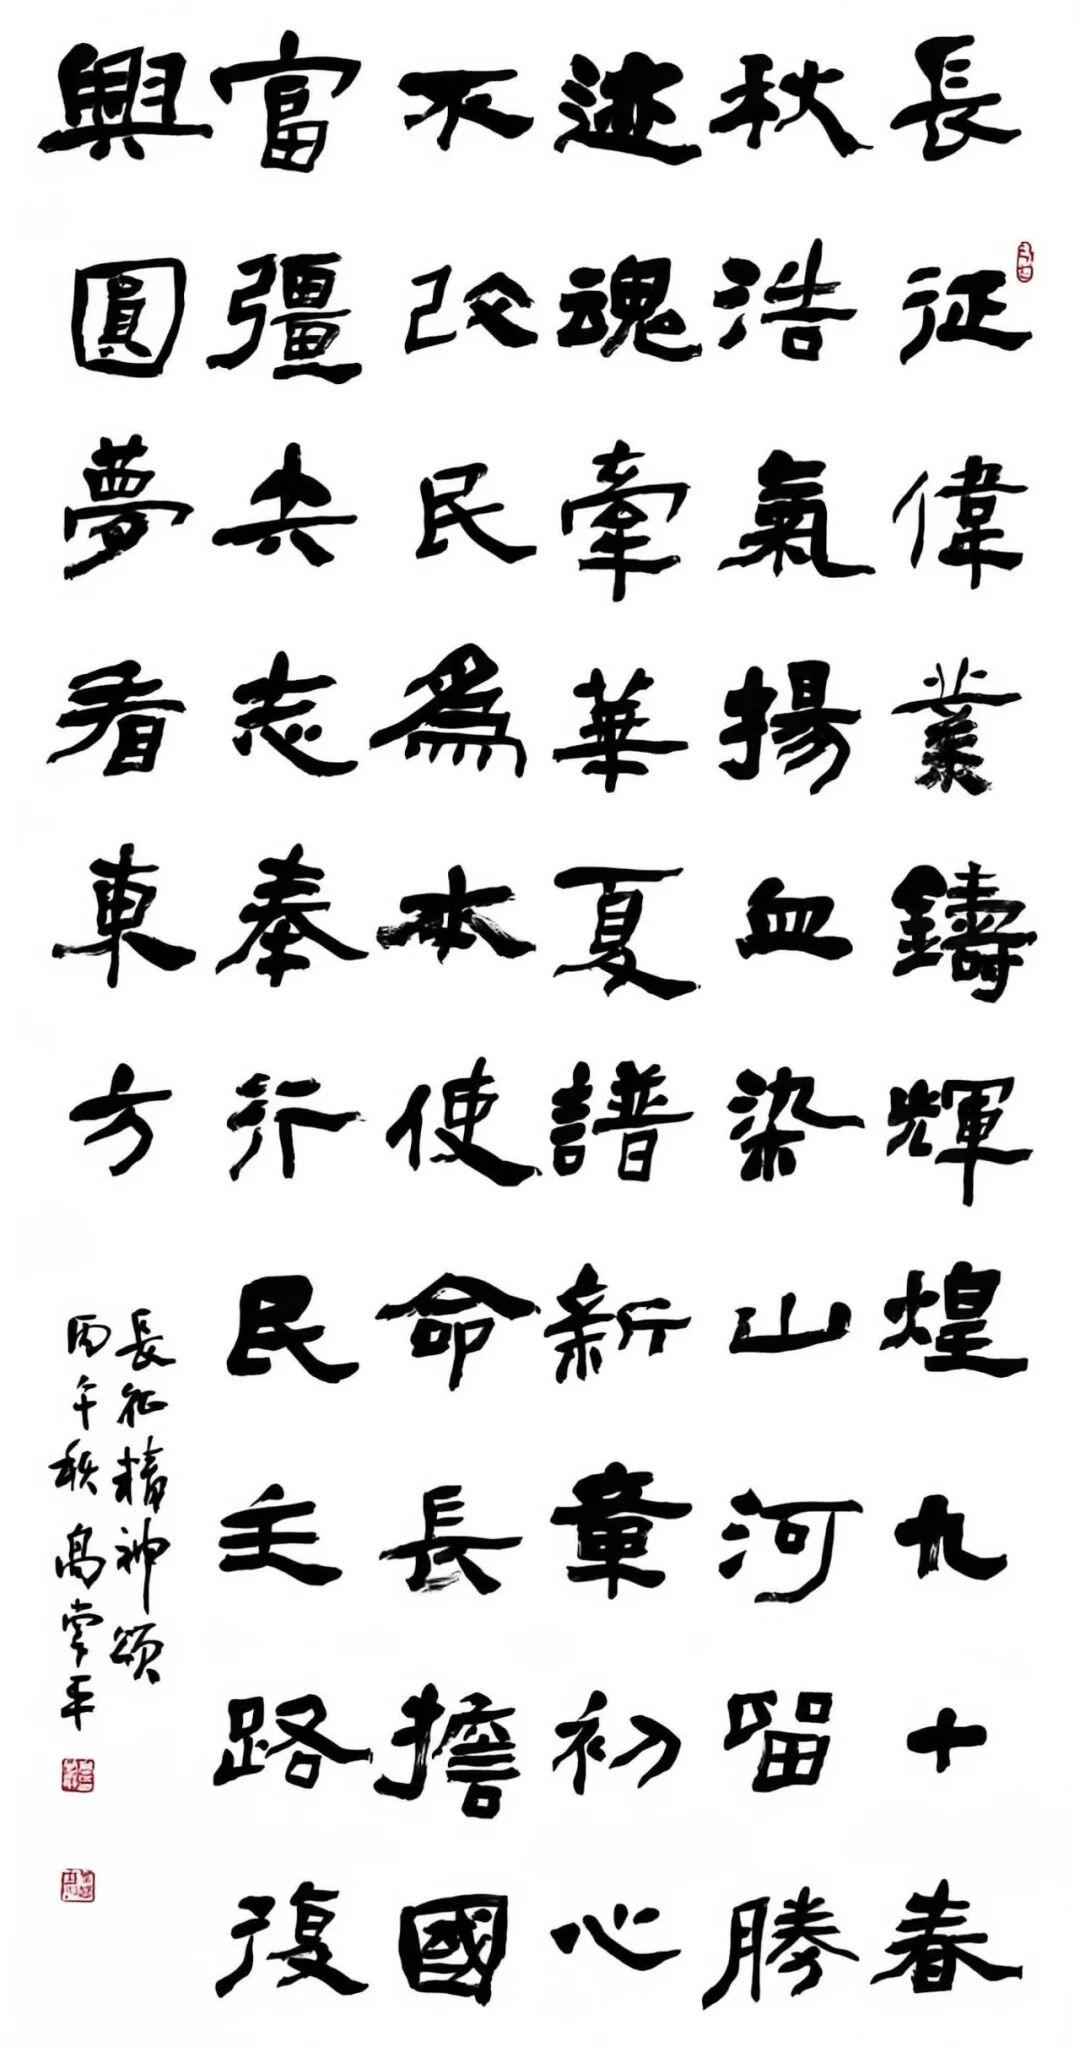 長征偉業鑄輝煌九十春
秋浩氣揚血染山河留勝
迹魂牽華夏譜新章初心
不改民爲本使命長擔國
富彊矢志奉行民主路復
興圓夢看東方
長征精神頌
丙午秋高平